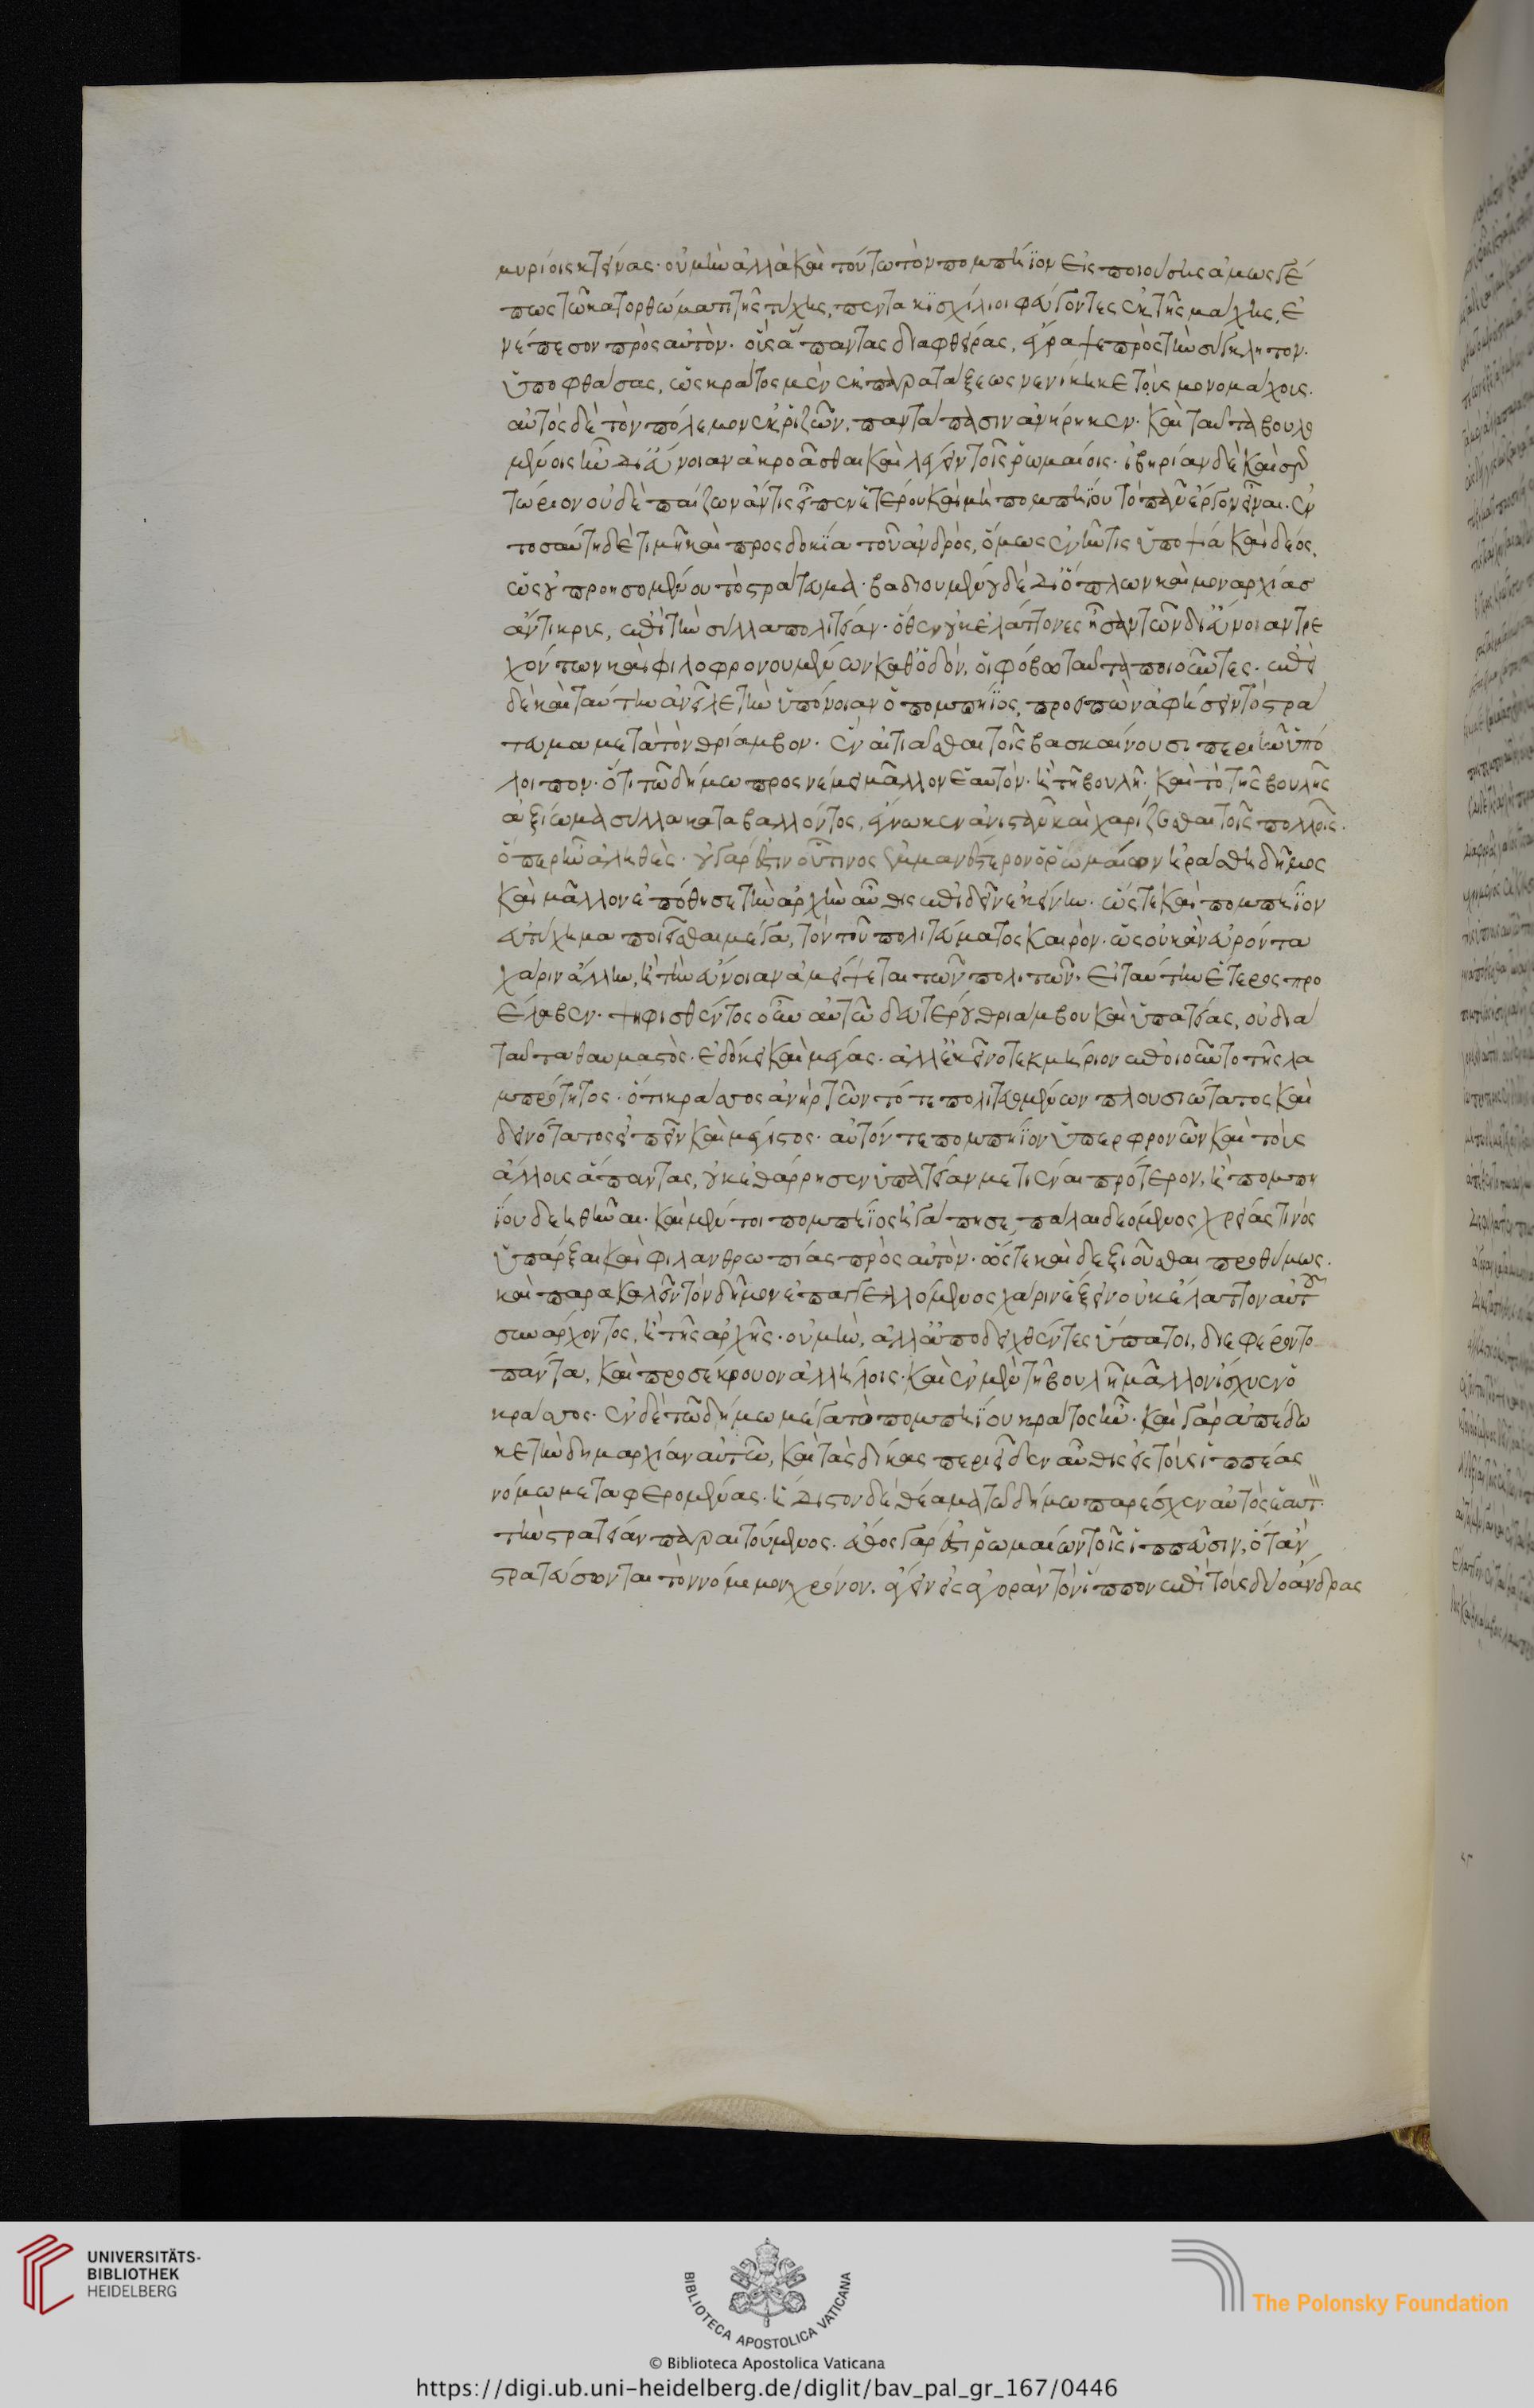 μυρίοις κτείνας· οὐ μὴν ἀλλὰ καὶ τούτω τὸν πομπήϊον εἰσποιούσης ἁμωσγέ
πως τῶ κατορθώματι τῆς τύχης, πεντακισχίλιοι φεύγοντες ἐκ τῆς μάχης, ἐ
νέπεσον πρὸς αὐτὸν· οὓς ἅπαντας διαφθείρας, ἔγραψε πρὸς τὴν σύγκλητον·
ὑποφθάσας, ὡς κράσσος μὲν ἐκ παρατάξεως νενίκηκε τοὺς μονομάχους·
αὐτὸς δὲ τὸν πόλεμον ἐκ ῥιζῶν, παντάπασιν ἀνήρηκεν· καὶ ταῦτα βουλο
μένοις ἦν δι' εὔνοιαν ἀκροᾶσθαι καὶ λέγειν τοῖς ῥωμαίοις· ἰβηρίαν δὲ καὶ σερ
τώριον οὐδὲ παίζων ἄν τις εἶπεν ἑτέρου καὶ μὴ πομπηΐου τὸ πᾶν ἔργον εἶναι· ἐν
τοσαύτη δὲ τιμῆ καὶ προσδοκία τοῦ ἀνδρὸς, ὅμως ἐνῆν τις ὑποψία καὶ δέος,
ὡς οὐ προησομένου τὸ στράτευμα· βαδιουμένου δὲ δι' ὅπλων καὶ μοναρχίας
ἄντικρυς, ἐπὶ τὴν σύλλα πολιτείαν· ὅθεν οὐκ ἐλάττονες ἦσαν τῶν δι' εὔνοιαν τρε
χόντων καὶ φιλοφρονουμένων καθ' ὁδόν, οἱ φόβω ταῦτα ποιοῦντες· ἐπεὶ
δὲ καὶ ταύτην ἀνεῖλε τὴν ὑπόνοιαν ὁ πομπήϊος, προειπὼν ἀφήσειν τὸ στρά
τευμα μετὰ τὸν θρίαμβον· ἓν αἰτιᾶσθαι τοῖς βασκαίνουσι περιῆν ὑπό
λοιπον· ὅτι τῶ δήμω προσνέμει μᾶλλον ἑαυτὸν· ἢ τῆ βουλῆ· καὶ τὸ τῆς βουλῆς
ἀξίωμα σύλλα καταβαλλόντος, ἔγνωκεν ἀνιστᾶν καὶ χαρίζεσθαι τοῖς πολλοῖς·
ὅπερ ἦν ἀληθὲς· οὐ γάρ ἐστιν οὗτινος ἐμμανέστερον ὁ ῥωμαίων ἠράσθη δῆμος
καὶ μᾶλλον ἐπόθησε τὴν ἀρχὴν αὖθις ἐπιδεῖν ἐκείνην· ὥστε καὶ πομπήϊον
εὐτύχημα ποιεῖσθαι μέγα, τὸν τοῦ πολιτεύματος καιρὸν· ὡς οὐκ ἂν εὑρόντα
χάριν ἄλλην, ἧ τὴν εὔνοιαν ἀμείψεται τῶν πολιτῶν· εἰ ταύτην ἕτερος προ
έλαβεν· ψηφισθέντος οὖν αὐτῶ δευτέρου θριάμβου καὶ ὑπατείας, οὐ διὰ
ταῦτα θαυμαστὸς· ἐδόκει καὶ μέγας· ἀλλ' ἐκεῖνο τεκμήριον ἐποιοῦντο τῆς λα
μπρότητος· ὅτι κράσσος ἀνὴρ τῶν τότε πολιτευομένων πλουσιώτατος καὶ
δεινότατος εἰπεῖν καὶ μέγιστος· αὐτόν τε πομπήϊον ὑπερφρονῶν καὶ τοὺς
ἄλλους ἅπαντας, οὐκ ἐθάρρησεν ὑπατείαν μετιέναι πρότερον, ἢ πομπη
ΐου δεηθῆναι· καὶ μέντοι πομπήϊος ἠγάπησε, πάλαι δεόμενος χρείας τινὸς
ὑπάρξαι καὶ φιλανθρωπίας πρὸς αὐτὸν· ὥστε καὶ δεξιοῦσθαι προθύμως·
καὶ παρακαλεῖν τὸν δῆμον ἐπαγγελλόμενος χάριν ἕξειν οὐκ ἐλάττον αὐτ
συνάρχοντος, ἢ τῆς ἀρχῆς· οὐ μὴν, ἀλλ' ἀποδειχθέντες ὕπατοι, διεφέροντο
πάντα, καὶ προσέκρουον ἀλλήλοις· καὶ ἐν μὲν τῆ βουλῆ μᾶλλον ἴσχυεν ὁ
κράσσος· ἐν δὲ τῶ δήμω μέγα τὸ πομπηΐου κράτος ἦν· καὶ γὰρ ἀπέδω
κε τὴν δημαρχίαν αὐτῶ, καὶ τὰς δίκας περιεῖδεν αὖθις εἰς τοὺς ἱππέας
νόμω μεταφερομένας· ἥδιστον δὲ θέαμα τῶ δήμω παρέσχεν αὐτὸς ἑαυτ
τὴν στρατείαν παραιτούμενος· ἔθος γάρ ἐστι ῥωμαίων τοῖς ἱππεῦσιν, ὅταν
στρατεύσωνται τὸν νόμιμον χρόνον, ἄγειν εἰς ἀγορὰν τὸν ἵππον ἐπὶ τοὺς δύο ἄνδρας
UNIVERSITÄTS-
BIBLIOTHEK
HEIDELBERG
BIBLIOTECA APOSTOLICA VATICANA
The Polonsky Foundation
© Biblioteca Apostolica Vaticana
https://digi.ub.uni-heidelberg.de/diglit/bav_pal_gr_167/0446